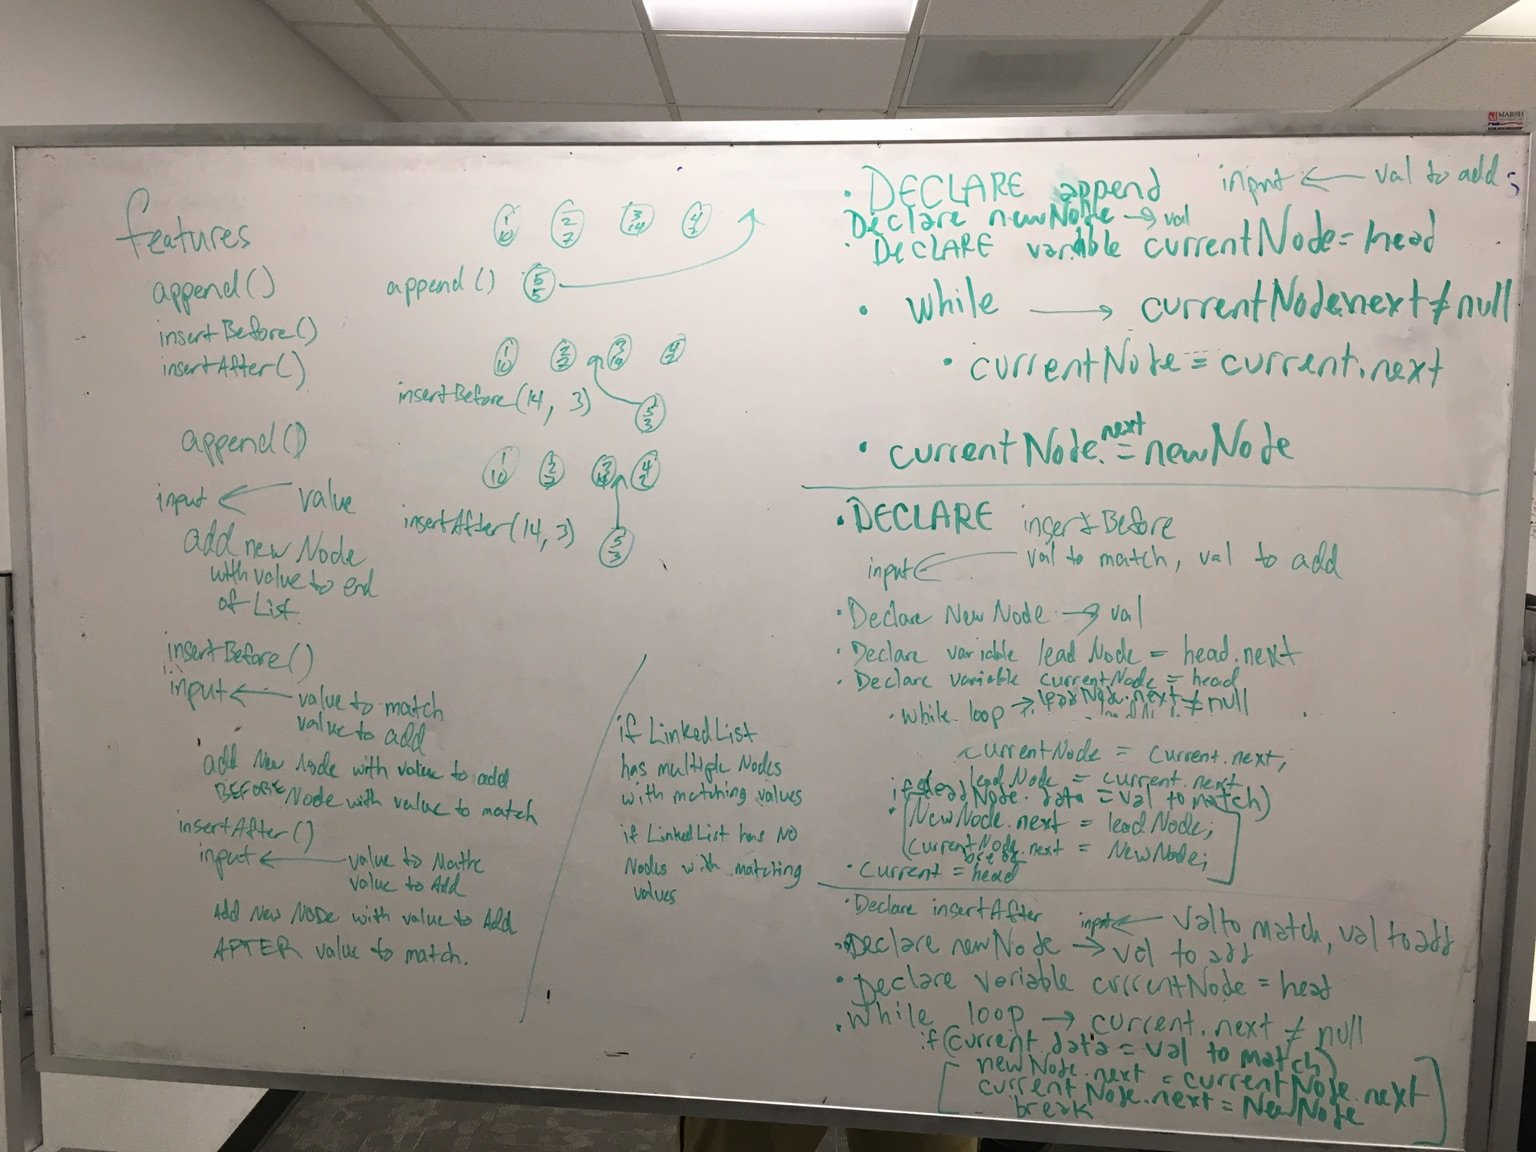 features
append()
insertBefore()
insertAfter()
append()
input ← value
add new Node
with value to end
of List
insertBefore()
input ← value to match
value to add
add New Node with value to add
BEFORE Node with value to match
insertAfter()
input ← value to Mathc
value to Add
Add New NODE with value to Add
AFTER value to match.
1 10
2 7
3 14
4 2
append() 5 5
1 10
2 2
3 14
4 2
insertBefore(14, 3) 5 3
1 10
2 2
3 14
4 2
insertAfter(14, 3) 5 3
if LinkedList
has multiple Nodes
with matching values
if LinkedList has NO
Nodes with matching
values
· DECLARE append input ← val to add;
Declare newNode → val
· DECLARE variable currentNode = head
· while → currentNode.next ≠ null
· currentNode = current.next
· currentNode.next = newNode
· DECLARE insertBefore
input ← val to match, val to add
· Declare New Node → val
· Declare variable lead Node = head.next
· Declare variable currentNode = head
· while loop → leadNode.next ≠ null
currentNode = current.next;
leadNode = current.next
if (leadNode.data = val to match)
· [NewNode.next = leadNode;
currentNode.next = NewNode;]
break
· current = head
· Declare insertAfter input ← val to match, val to add
· Declare newNode → val to add
· Declare variable currentNode = head
· While loop → current.next ≠ null
if (current.data = val to match)
[newNode.next = currentNode.next
currentNode.next = NewNode
break]
MARSH